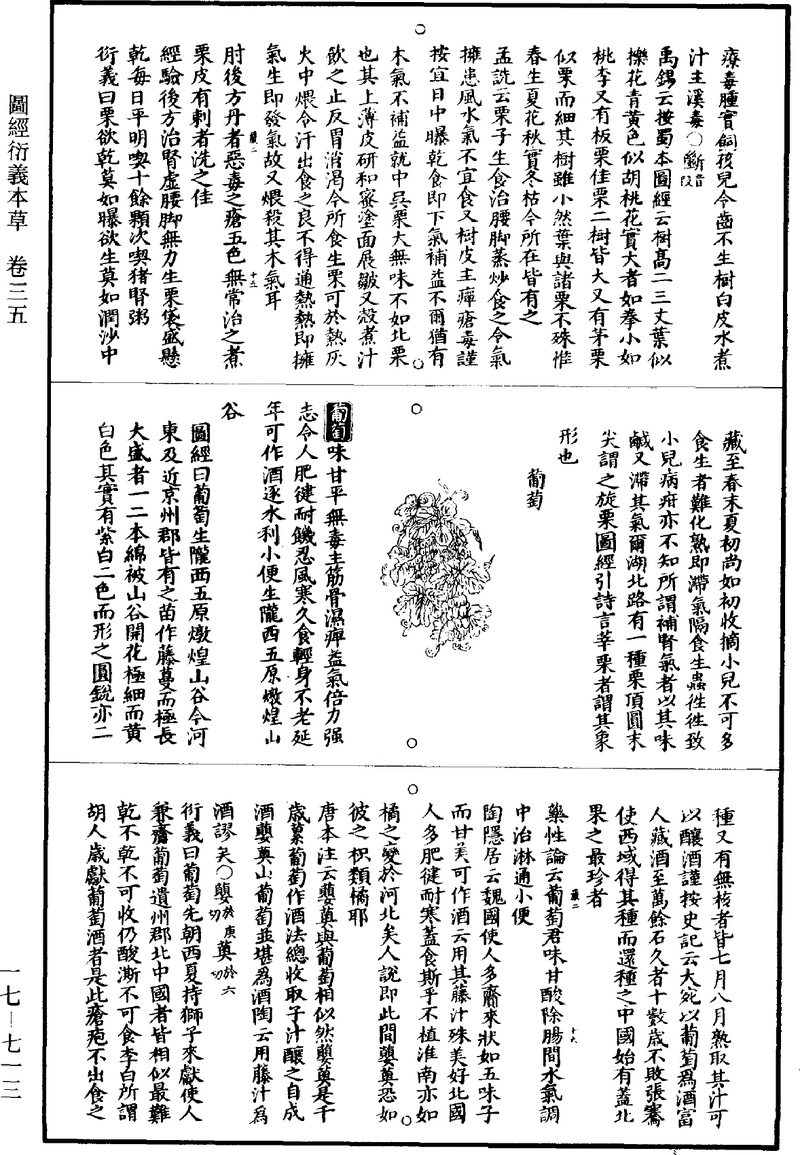 圖經衍義本草　卷三五
療毒腫實飼孩兒令齒不生樹白皮水煮
汁主溪毒○斷音段
禹錫云按蜀本圖經云樹高二三丈葉似
櫟花青黃色似胡桃花實大者如拳小如
桃李又有板栗佳栗二樹皆大又有茅栗
似栗而細其樹雖小然葉與諸栗不殊惟
春生夏花秋實冬枯今所在皆有之
孟詵云栗子生食治腰脚蒸炒食之令氣
擁患風水氣不宜食又樹皮主癉瘡毒謹
按宜日中曝乾食即下氣補益不爾猶有
木氣不補益就中吳栗大無味不如北栗
也其上薄皮研和蜜塗面展皺又殼煮汁
飲之止反胃消渴今所食生栗可於熱灰
火中煨令汗出食之良不得通熱熱即擁
氣生即發氣故又煨殺其木氣耳
肘後方丹者惡毒之瘡五色無常治之煮
栗皮有刺者洗之佳
經驗後方治腎虛腰脚無力生栗袋盛懸
乾每日平明喫十餘顆次喫猪腎粥
衍義曰栗欲乾莫如曝欲生莫如潤沙中
藏至春末夏初尚如初收摘小兒不可多
食生者難化熟即滯氣隔食生蟲往往致
小兒病疳亦不知所謂補腎氣者以其味
鹹又滯其氣爾湖北路有一種栗頂圓末
尖謂之旋栗圖經引詩言莘栗者謂其象
形也
葡萄
葡萄味甘平無毒主筋骨濕痺益氣倍力强
志令人肥健耐饑忍風寒久食輕身不老延
年可作酒逐水利小便生隴西五原燉煌山
谷
圖經曰葡萄生隴西五原燉煌山谷今河
東及近京州郡皆有之苗作藤蔓而極長
大盛者一二本綿被山谷開花極細而黃
白色其實有紫白二色而形之圓銳亦二
種又有無核者皆七月八月熟取其汁可
以釀酒謹按史記云大宛以葡萄爲酒富
人藏酒至萬餘石久者十數歲不敗張騫
使西域得其種而還種之中國始有蓋北
果之最珍者
藥性論云葡萄君味甘酸除腸間水氣調
中治淋通小便
陶隱居云魏國使人多齎來狀如五味子
而甘美可作酒云用其藤汁殊美好北國
人多肥健耐寒蓋食斯乎不植淮南亦如
橘之變於河北矣人說即此間蘡薁恐如
彼之枳類橘耶
唐本注云蘡薁與葡萄相似然蘡薁是千
歲蘽葡萄作酒法總收取子汁釀之自成
酒蘡薁山葡萄並堪爲酒陶云用藤汁爲
酒謬矣○蘡於庚切薁於六切
衍義曰葡萄先朝西夏持獅子來獻使人
兼齎葡萄遺州郡北中國者皆相似最難
乾不乾不可收仍酸澌不可食李白所謂
胡人歲獻葡萄酒者是此瘡疱不出食之
一七—七一三